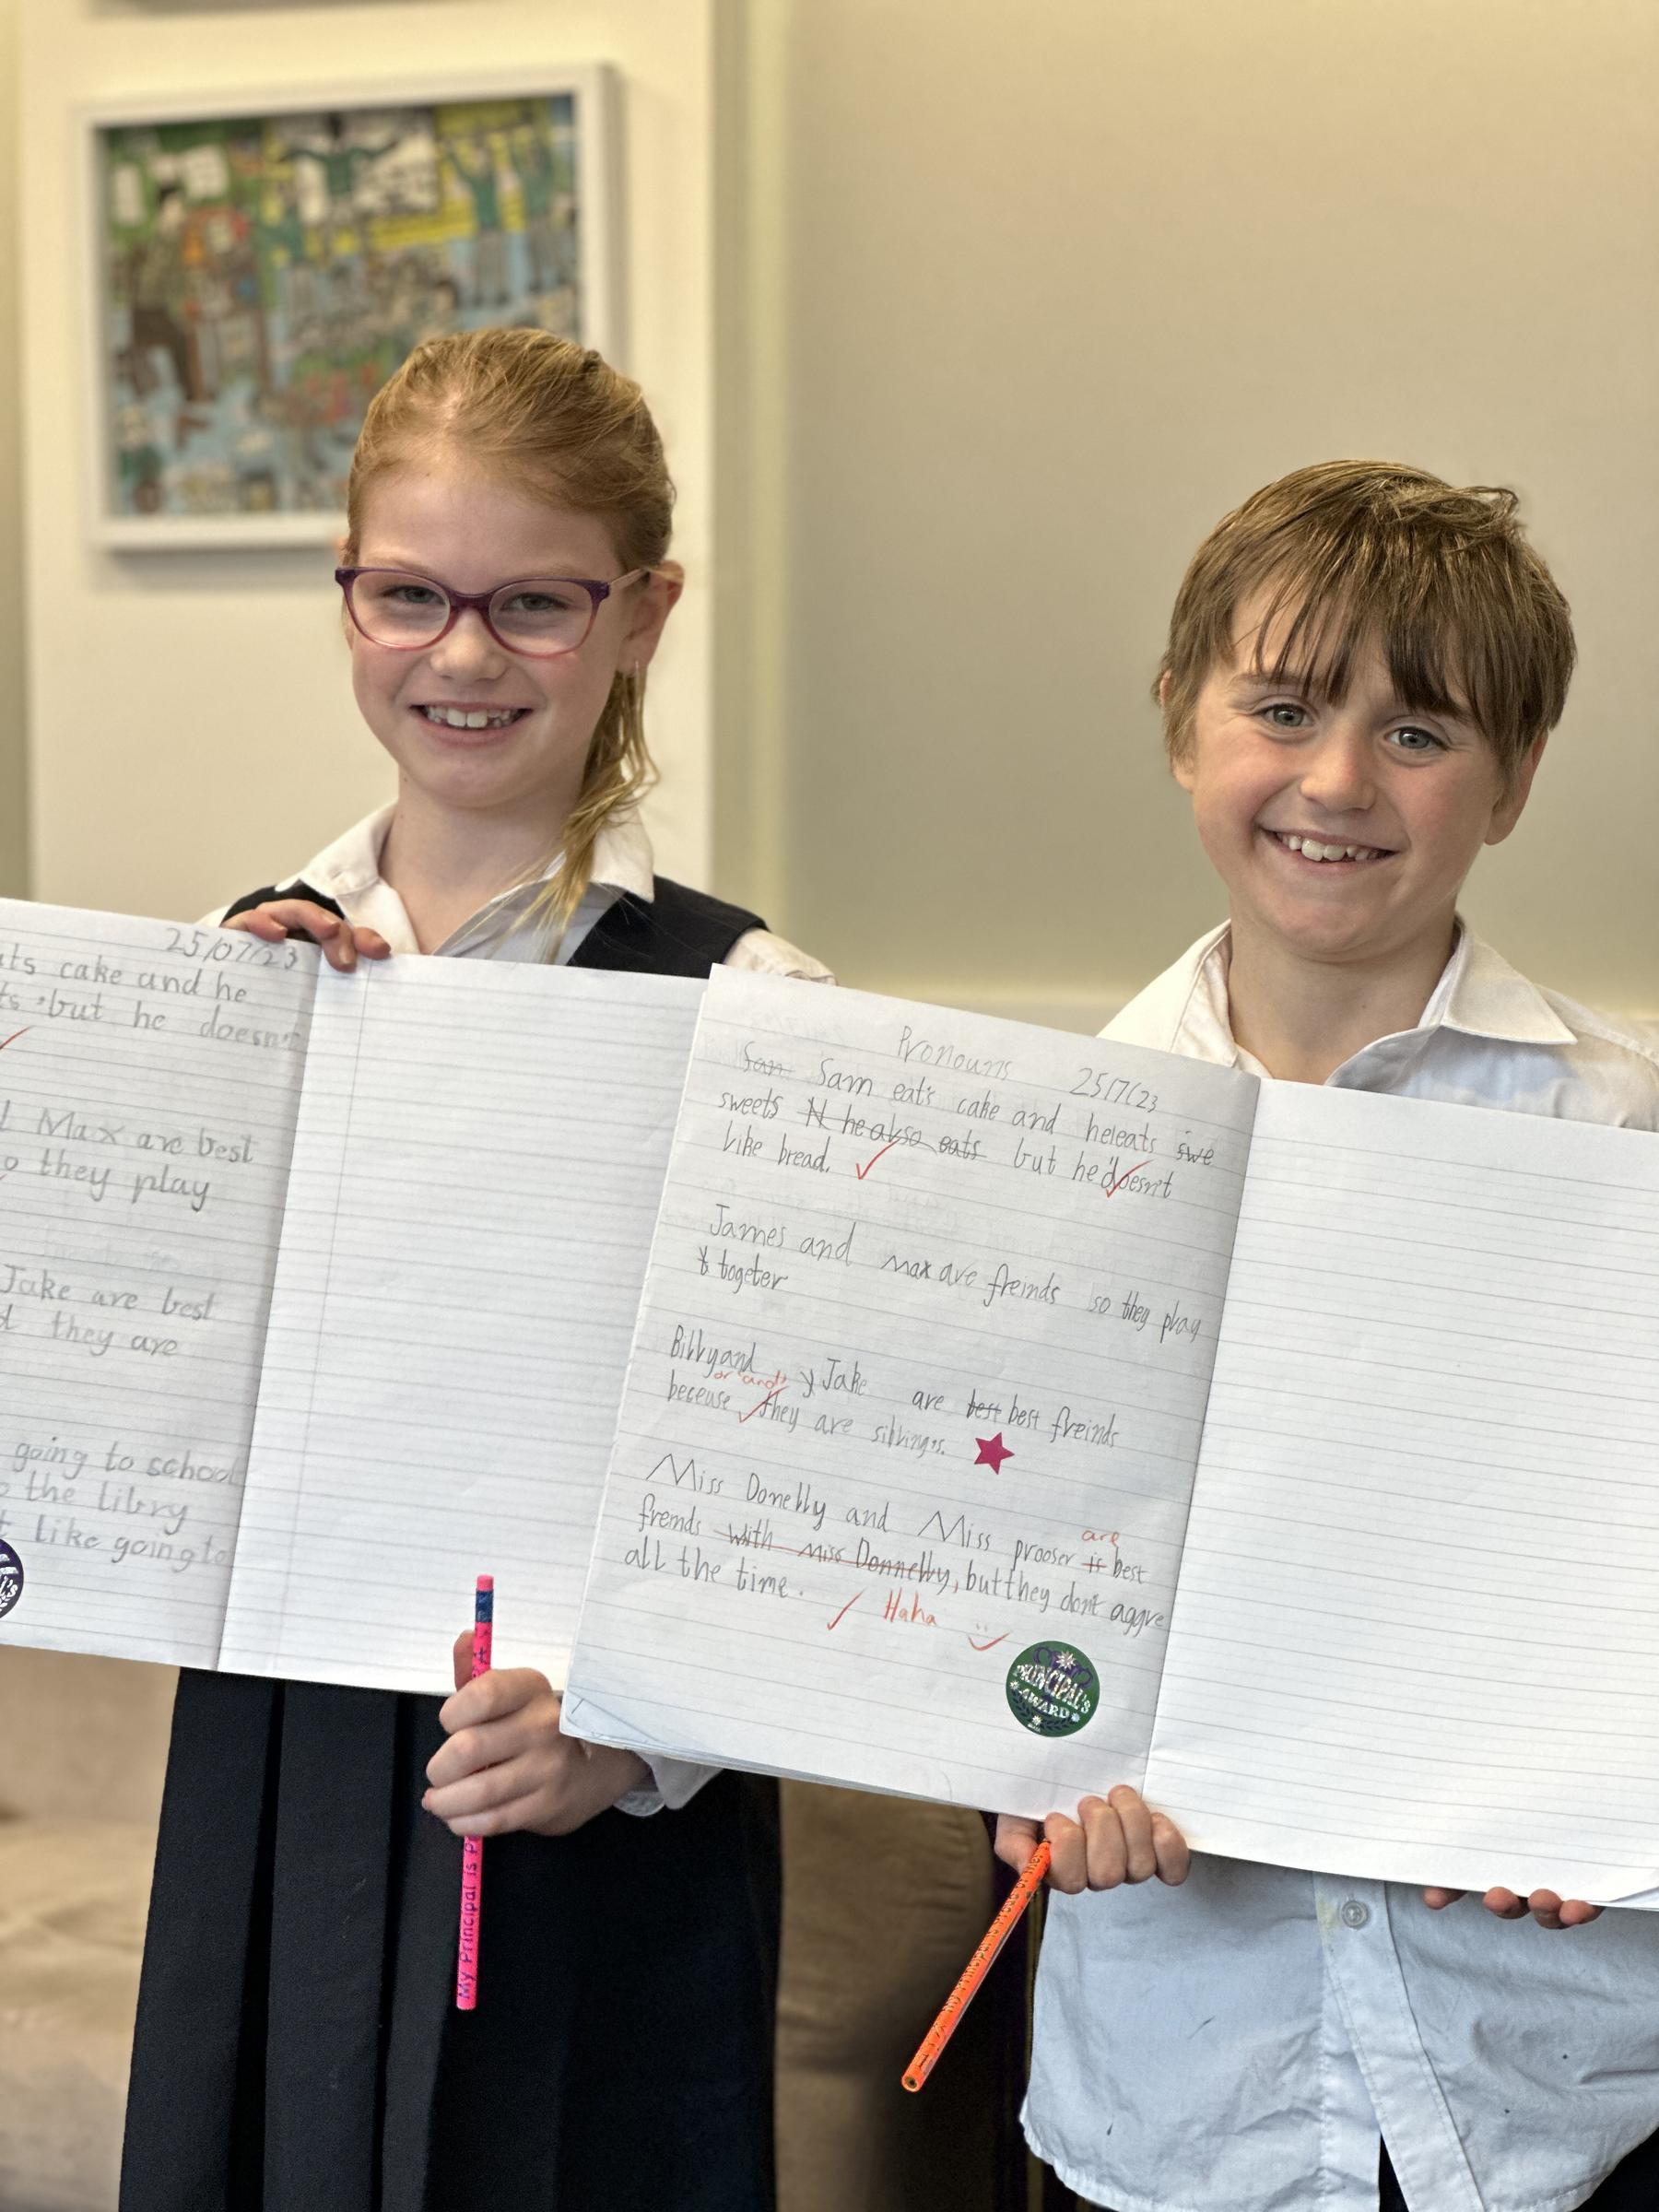 25/07/23
cake and he
but he doesn't
Max are best
they play
Jake are best
they are
going to school
the libry
like going to
Pronouns 25/7/23
San Sam eat's cake and heleats swe
sweets N he also eats but he doesn't
like bread.
James and max are freinds so they play
t togeter
Billy and y Jake are best best freinds
or "and"
beceuse they are silvings.
Miss Donelly and Miss prooser is best
are
frends with miss Donnelly, but they don't aggre
all the time.
Haha
PRINCIPAL'S
AWARD
My Principal is P
My Principal is Proud of Me!